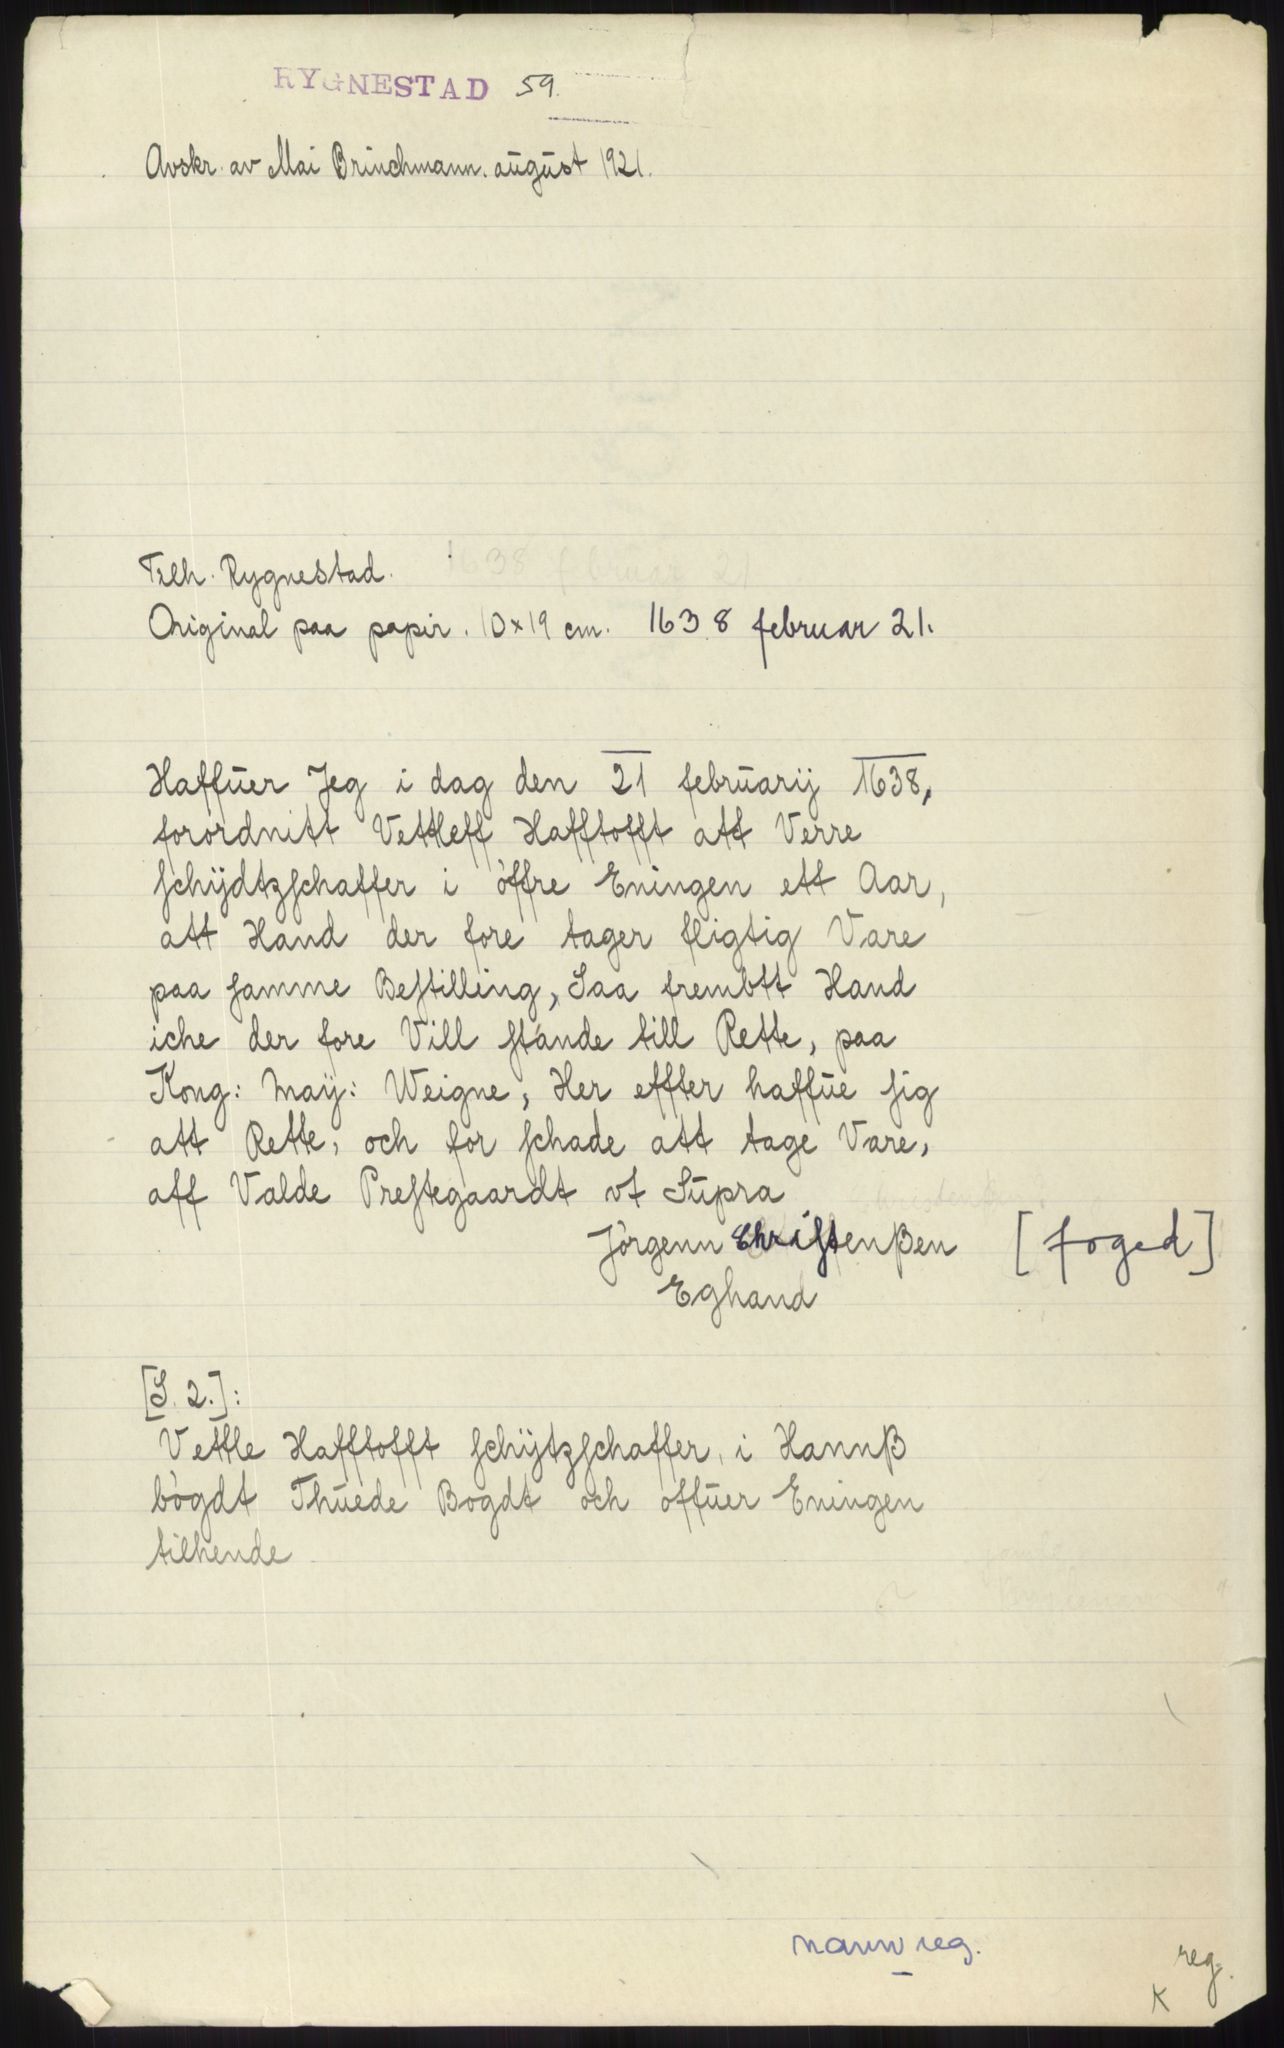 RYGNESTAD 59.
Avskr. av Mai Brinchmann. august 1921.
Tilh. Rygnestad. 1638 februar 21
Original paa papir. 10×19 cm. 1638 februar 21.
Haffuer Jeg i dag den 21 februarij 1638,
forordnitt Vettleff Hafftofft att Verre
schijdtzschaffer i öffre Eningen ett Aar,
att Hand der fore tager fligtig Vare
paa samme Bestilling, Saa frembtt Hand
iche der fore Vill stande till Rette, paa
Kong: Maÿ: Weigne, Her effter haffue sig
att Rette, och for schade att tage Vare,
aff Valde Prestegaardt vt Supra
Jörgenn Christenßen [foged]
Eghand
[S. 2.]:
Vettle Hafftofft schijtzschaffer i Hannß
bögdt Thuede Bogdt och offuer Eningen
tilhende
navnreg.
reg.
K